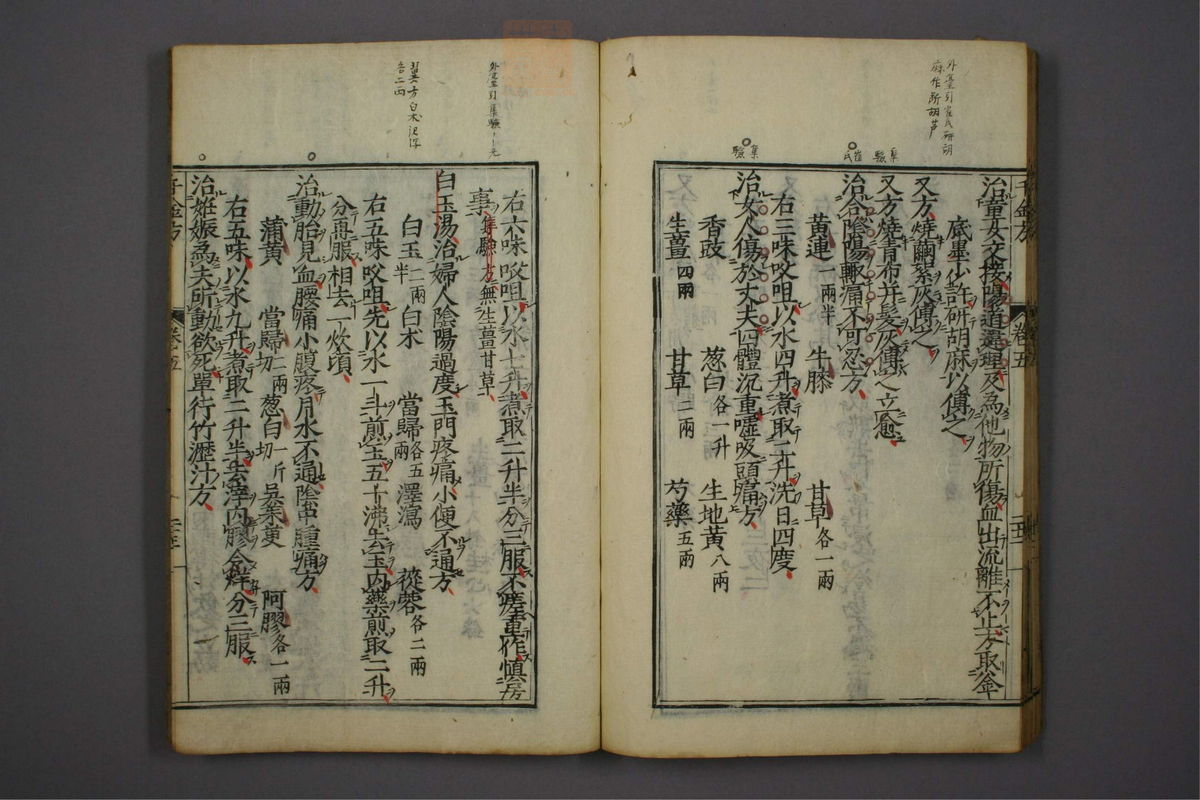 外臺引崔氏研胡
麻作研胡芦
集驗 崔氏
集驗
治童女交接陽道違理及為他物所傷血出流離不止方取釜
底墨少許研胡麻以傅之
又方燒繭絮灰傅之
又方燒青布并髮灰傅之立愈
治合陰陽輙痛不可忍方
黃連一兩半 牛膝 甘草各一兩
右三味㕮咀以水四升煮取二升洗日四度
治女人傷於丈夫四體沉重噓吸頭痛方
香豉 葱白各一升 生地黃八兩
生薑四兩 甘草二兩 芍藥五兩
千金方 卷五
外臺引集驗
翼方白朮澤
各二兩
右六味㕮咀以水七升煮取二升半分三服不瘥重作慎房
事集驗方無生薑甘草
白玉湯治婦人陰陽過度玉門疼痛小便不通方
白玉一兩半 白朮 當歸各五兩 澤瀉 蓯蓉各二兩
右五味㕮咀先以水一斗煎玉五十沸去玉內藥煎取二升
分再服相去一炊頃
治動胎見血腰痛小腹疼月水不通陰中腫痛方
蒲黃 當歸切二兩 葱白切一斤 吳茱萸 阿膠各一兩
右五味以水九升煮取二升半去滓內膠令烊分三服
治妊娠為夫所動欲死單行竹瀝汁方
千金方 卷五